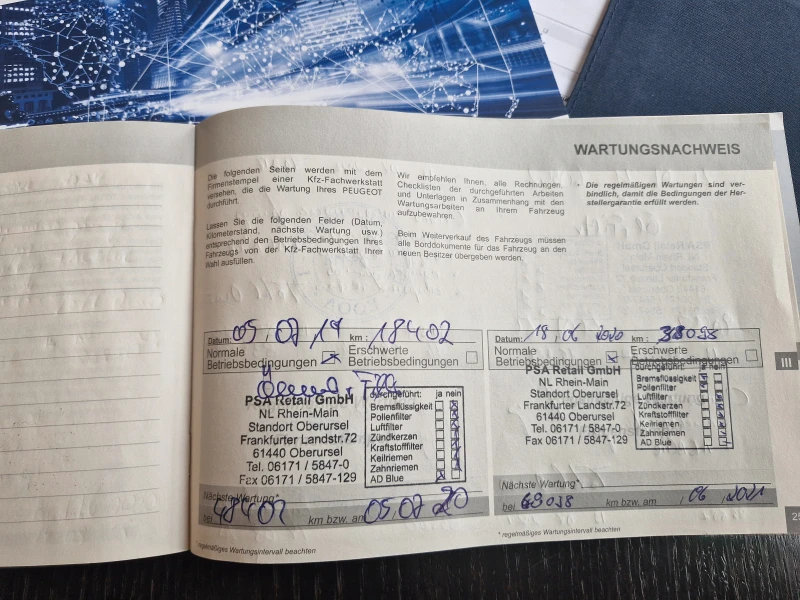 WARTUNGSNACHWEIS
Die folgenden Seiten werden mit dem
Firmenstempel einer Kfz-Fachwerkstatt
versehen, die die Wartung Ihres PEUGEOT
durchführt.
Lassen Sie die folgenden Felder (Datum,
Kilometerstand, nächste Wartung usw.)
entsprechend den Betriebsbedingungen Ihres
Fahrzeugs von der Kfz-Fachwerkstatt Ihrer
Wahl ausfüllen.
Wir empfehlen Ihnen, alle Rechnungen,
Checklisten der durchgeführten Arbeiten
und Unterlagen in Zusammenhang mit den
Wartungsarbeiten an Ihrem Fahrzeug
aufzubewahren.
Beim Weiterverkauf des Fahrzeugs müssen
alle Borddokumente für das Fahrzeug an den
neuen Besitzer übergeben werden.
Die regelmäßigen Wartungen sind ver-
bindlich, damit die Bedingungen der Her-
stellergarantie erfüllt werden.
Datum: 05, 07 19 km: 18402
Normale Betriebsbedingungen
Erschwerte Betriebsbedingungen
PSA Retail GmbH
NL Rhein-Main
Standort Oberursel
Frankfurter Landstr.72
61440 Oberursel
Tel. 06171 / 5847-0
Fax 06171 / 5847-129
durchgeführt: ja nein
Bremsflüssigkeit
Pollenfilter
Luftfilter
Zündkerzen
Kraftstofffilter
Keilriemen
Zahnriemen
AD Blue
Nächste Wartung*
bei 48402 km bzw. am 05,07 20
* regelmäßiges Wartungsintervall beachten
Datum: 18, 06 2020 km:
Normale Betriebsbedingungen
Erschwerte Betriebsbedingungen
PSA Retail GmbH
NL Rhein-Main
Standort Oberursel
Frankfurter Landstr.72
61440 Oberursel
Tel. 06171 / 5847-0
Fax 06171 / 5847-129
durchgeführt: ja nein
Bremsflüssigkeit
Pollenfilter
Luftfilter
Zündkerzen
Kraftstofffilter
Keilriemen
Zahnriemen
AD Blue
Nächste Wartung*
bei km bzw. am , 06 , 2021
* regelmäßiges Wartungsintervall beachten
III